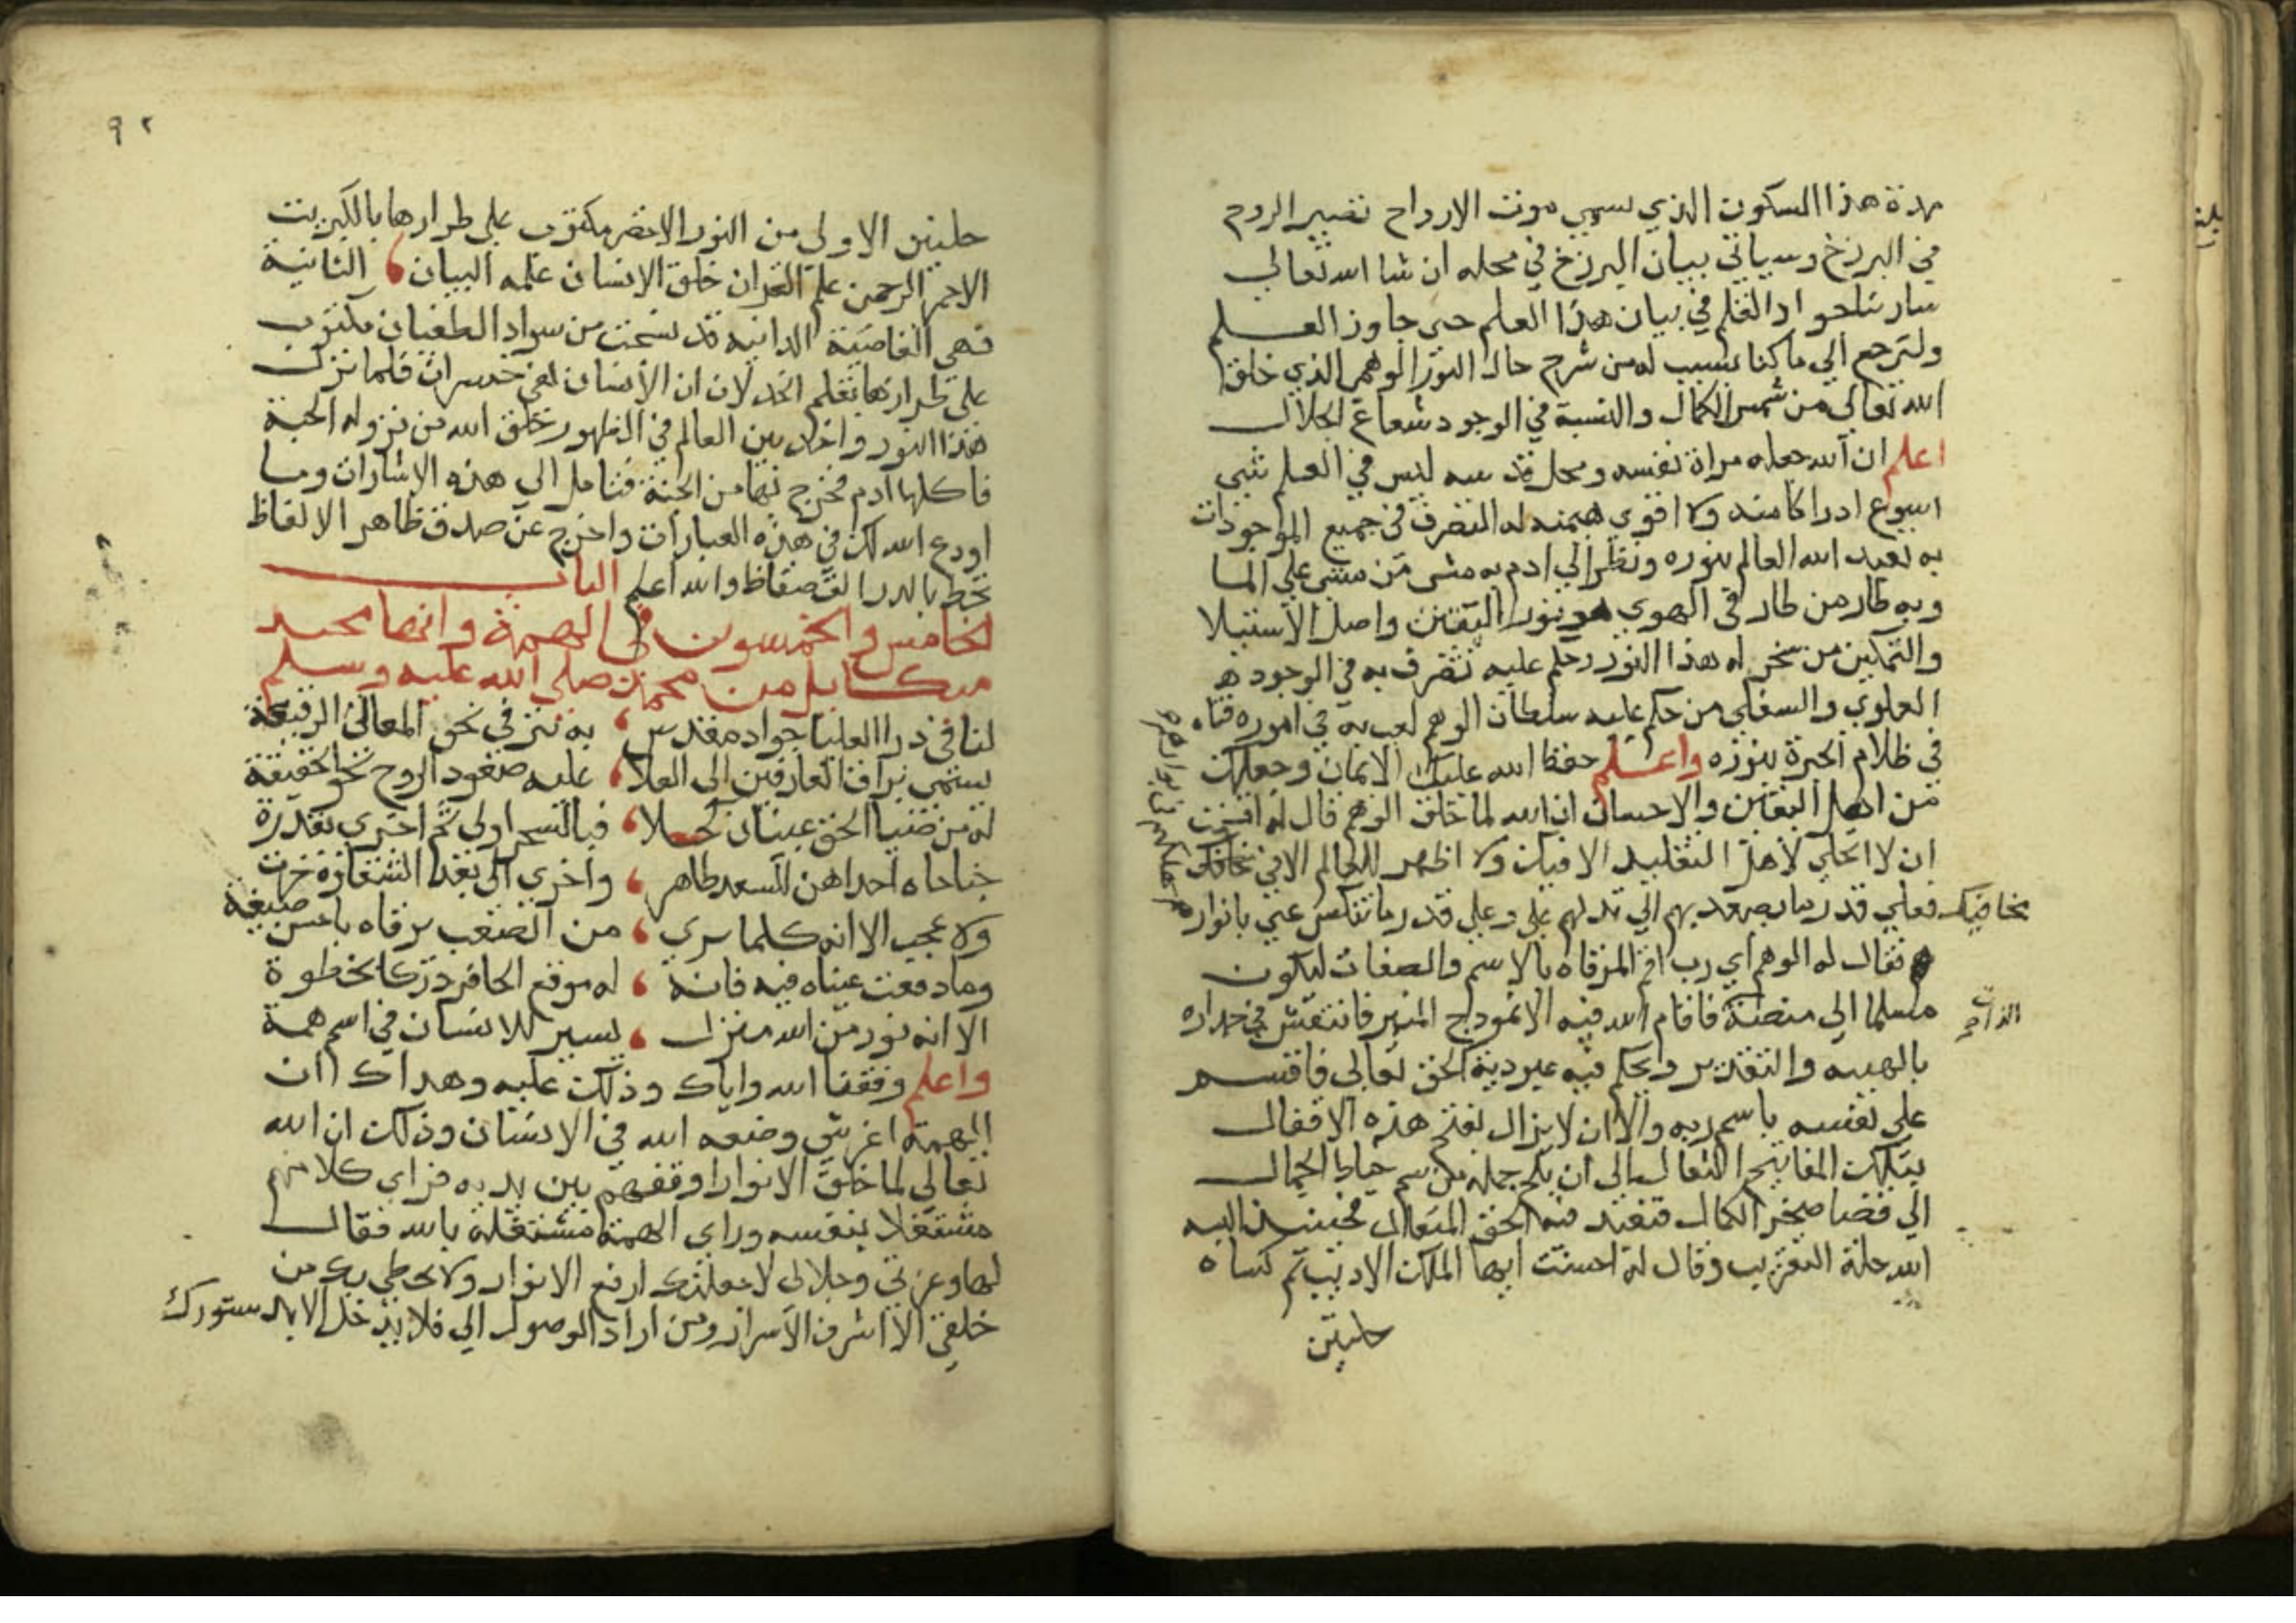 مدة هذا السكون الذي يسمي موت الارواح تصير الروح
في البرزخ وسياتي بيان البرزخ في محله ان شا الله تعالي
سار بنا جواد القلم في بيان هذا العلم حتي جاوز العلم
ولنرجع الي ما كنا بسبيله من شرح حال النور الوهم الذي خلق
الله تعالي من شمس الكمال والنسبة في الوجود شعاع الجلال
اعلم ان الله جعله مراة نفسه ومحل قدسه ليس في العلم شي
اسرع ادراكا منه ولا اقوي هيمنه له التصرف في جميع الموجودات
به تعبد الله العالم بنوره ونظر الي ادم به مشي من مشي علي الما
وبه طار من طار في الهوي هو نور اليقين واصل الاستيلا
والتمكين من سخر له هذا النور وحكم عليه تصرف به في الوجود
العلوي والسفلي من حكم عليه سلطان الوهم لعب به في اموره فتاه
في ظلام الحيرة بنوره واعلم حفظ الله عليك الايمان وجعلك
من اهل اليقين والاحسان ان الله لما خلق الوهم قال له اقسمت
ان لا اتجلي لاهل التقليد الا فيك ولا اظهر للعالم الا في مخافك
مخافيك
فعلي قدر ما تصعد بهم الي تدلهم علي وعلي قدر ما تنكس عني بانوار
فقال له الوهم اي رب اقم المرقاه بالاسم والصفات ليكون
سلما الي منصة فاقام الله فيه الانموذج المنير فانتقش في جداره
الذات
بالهيبه والتقدير وتحكم فيه عبودية الحق تعالي فاقسم
علي نفسه باسم ربه والا ان لا يزال يفتح هذه الاقفال
بتلك المفاتيح الثقال الي ان يلج جمله من سم خياط الجمال
الي فضا صحرا الكمال فتعبد فيه الحق المتعال فحينيذ البسه
الله حلة التقريب وقال له احسنت ايها الملك الاديب ثم كساه
حلتين
٩٢
حلتين الاولي من النور الاخضر مكتوب علي طرازها بالكبريت
الاحمر الرحمن علم القران خلق الانسان علمه البيان الثانية
فهي القاصية الدانيه قد نسجت من سواد الطغيان مكتوب
علي طرازها بقلم الخذلان ان الانسان لفي خسران فلما نزل
هذا النور واخذ بين العالم في الظهور خلق الله من نزوله الحبة
فاكلها ادم فخرج بها من الجنة فتامل الي هذه الاشارات وما
اودع الله لك في هذه العبارات واخرج عن صدف ظاهر الالفاظ
تحظ بالدر والله اعلم الباب
الخامس والخمسون في الهمة وانها محتد
ميكاييل من محمد صلي الله عليه وسلم
لنا في ذرا العليا جواد مقدس به نرقي نحو المعالي الرفيعة
يسمي براق العارفين الي العلا عليه صعود الروح نحو الحقيقة
له من ضيا الحق عينان كحلا فبالسحر اولي ثم اخري بقدرة
جناحاه احداهن للسعد طاهر واخري الي بعد الشقاوة خرت
ولا عجب الا انه كلما يري من الصعب يرقاه باحسن صنيعة
وما دفعت عيناه فيه فانه له موقع الحافر درك الخطوة
الا انه نور من الله منزل يسير للانسان في اسم همة
واعلم وفقنا الله واياك وذلك عليه وهداك ان
الهمة اعز شي وضعه الله في الانسان وذلك ان الله
تعالي لما خلق الانوار اوقفهم بين يديه فراي كلا منهم
مشتغلا بنفسه وراي الهمة مشتغلة بالله فقال
لها وعزتي وجلالي لاجعلنك ارفع الانوار ولا يحظي بك من
خلقي الا اشرف الاسرار ومن اراد الوصول الي فلا يدخل الا بدستورك